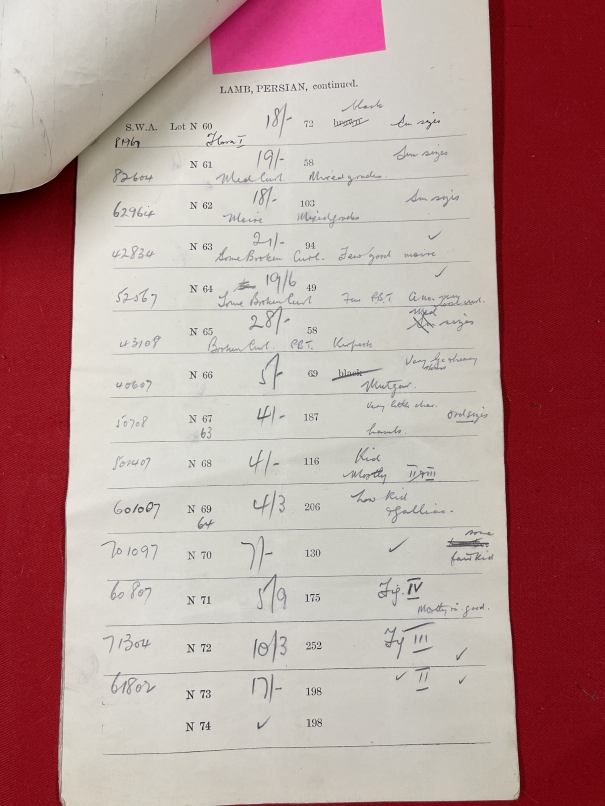 LAMB, PERSIAN, continued.
Black
S.W.A. Lot N 60 18/- 72 Sm sizes
P1967 Flora I
N 61 19/- 58 Sm sizes
82604 Med Curl Mixed grades.
N 62 18/- 103 Sm sizes
62964 Moire Mixed grades
N 63 21/- 94 ✓
42834 Some Broken Curl. Few good moire
N 64 19/6 49 ✓
52567 Some Broken Curl Few P.B.T.
N 65 28/- 58 sizes
43108 Broken Curl. P.B.T.
N 66 5/- 69 black Very
40607
N 67 4/- 187 Very little char. odd sizes
50708 63
N 68 4/- 116 Kid
Mostly II & III
N 69 4/3 206 Low Kid
601007 64 & Gallias.
some
701097 N 70 7/- 130 ✓
Kid
60807 N 71 5/9 175 Fig. IV
Mostly in good.
71304 N 72 10/3 252 Fig III ✓
61802 N 73 17/- 198 ✓ II ✓
N 74 ✓ 198